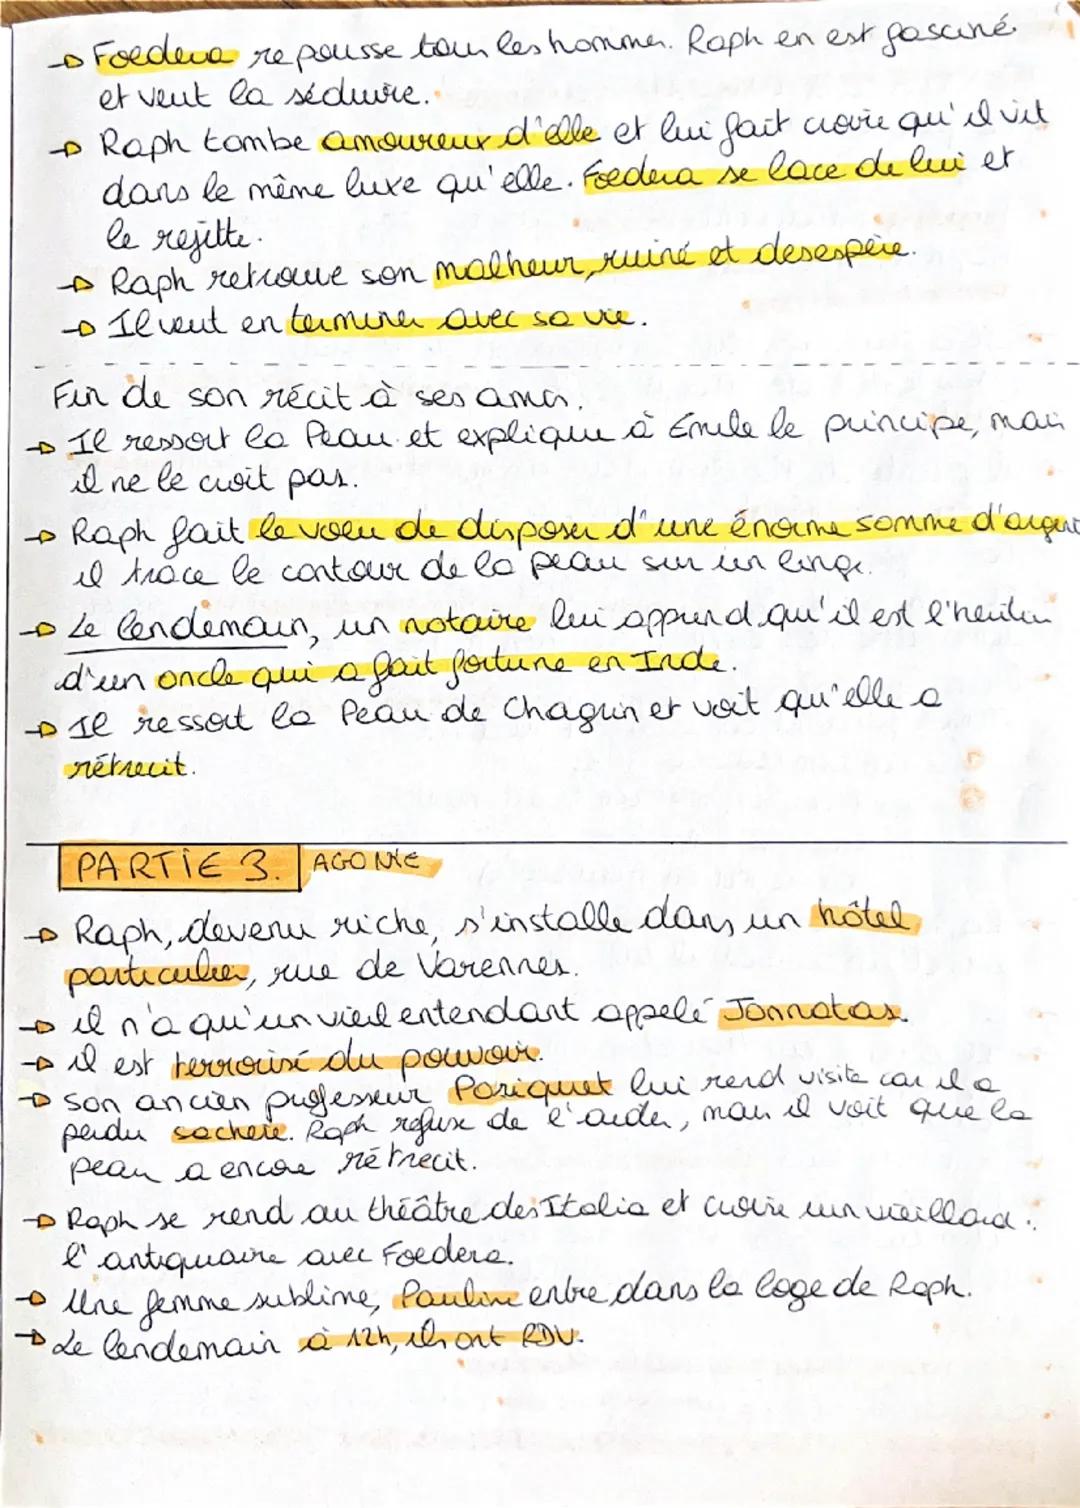 → Foedera repousse tous les hommes. Raph en est fasciné
et veut la séduire.
→ Raph tombe amoureux d'elle et lui fait croire qu'il vit
dans le même luxe qu'elle. Foedera se lace de lui et
le rejitte.
→ Raph retrouve son malheur, ruiné et desespère.
→ Il veut en terminer avec sa vie.
Fin de son récit à ses amis.
→ Il ressort la Peau et explique à Émile le principe, mais
il ne le croit pas.
→ Raph fait le voeu de disposer d'une énorme somme d'argent
il trace le contour de la peau sur un linge.
→ Le lendemain, un notaire lui apprend qu'il est l'héritier
d'un oncle qui a fait fortune en Inde.
→ Il ressort la Peau de Chagrin et voit qu'elle a
rétrecit.
PARTIE 3. AGONIE
→ Raph, devenu riche, s'installe dans un hôtel
particulier, rue de Varennes.
→ il n'a qu'un vieil entendant appelé Jonnatas.
→ il est terrorisé du pouvoir.
→ son ancien professeur Poriquet lui rend visite car il a
perdu sachere. Raph refuse de l'aider, mais il voit que la
peau a encore rétrecit.
→ Raph se rend au théâtre des Italia et croire un vieillard :
l'antiquaire avec Foedera.
→ Une femme sublime, Pauline entre dans la loge de Raph.
→ Le lendemain à 12h, ils ont RDV.